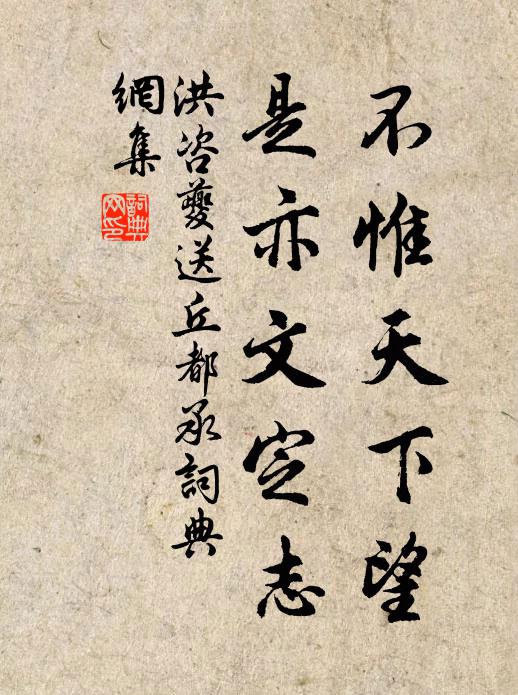 不惟天下望
是亦文定志
洪咨夔送丘都承詞典
網集
詞典
网印